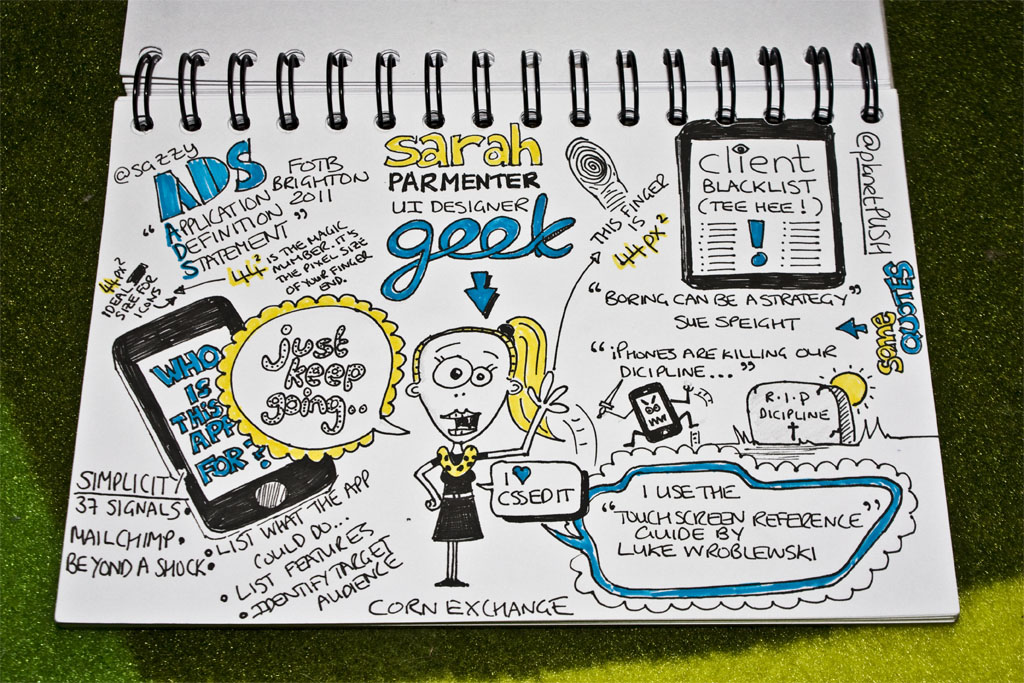 @sazzy
ADS
FOTB
BRIGHTON
2011
"APPLICATION
DEFINITION
STATEMENT"
44² IS THE MAGIC
NUMBER. IT'S
THE PIXEL SIZE
OF YOUR FINGER
END.
44PX²
IDEAL
SIZE FOR
ICONS
sarah
PARMENTER
UI DESIGNER
geek
THIS FINGER
IS
44PX²
client
BLACKLIST
(TEE HEE!)
!
@planetPUSH
"BORING CAN BE A STRATEGY"
SUE SPEIGHT
some
QUOTES
"iPHONES ARE KILLING OUR
DICIPLINE..."
R.I.P
DICIPLINE
WHO
IS
THIS
APP
FOR?
just
keep
going..
I ♥
CSSEDIT
I USE THE
"TOUCH SCREEN REFERENCE"
GUIDE BY
LUKE WROBLEWSKI
SIMPLICITY
37 SIGNALS•
MAILCHIMP•
BEYOND A SHOCK•
•LIST WHAT THE APP
COULD DO...
•LIST FEATURES
•IDENTIFY TARGET
AUDIENCE
CORN EXCHANGE